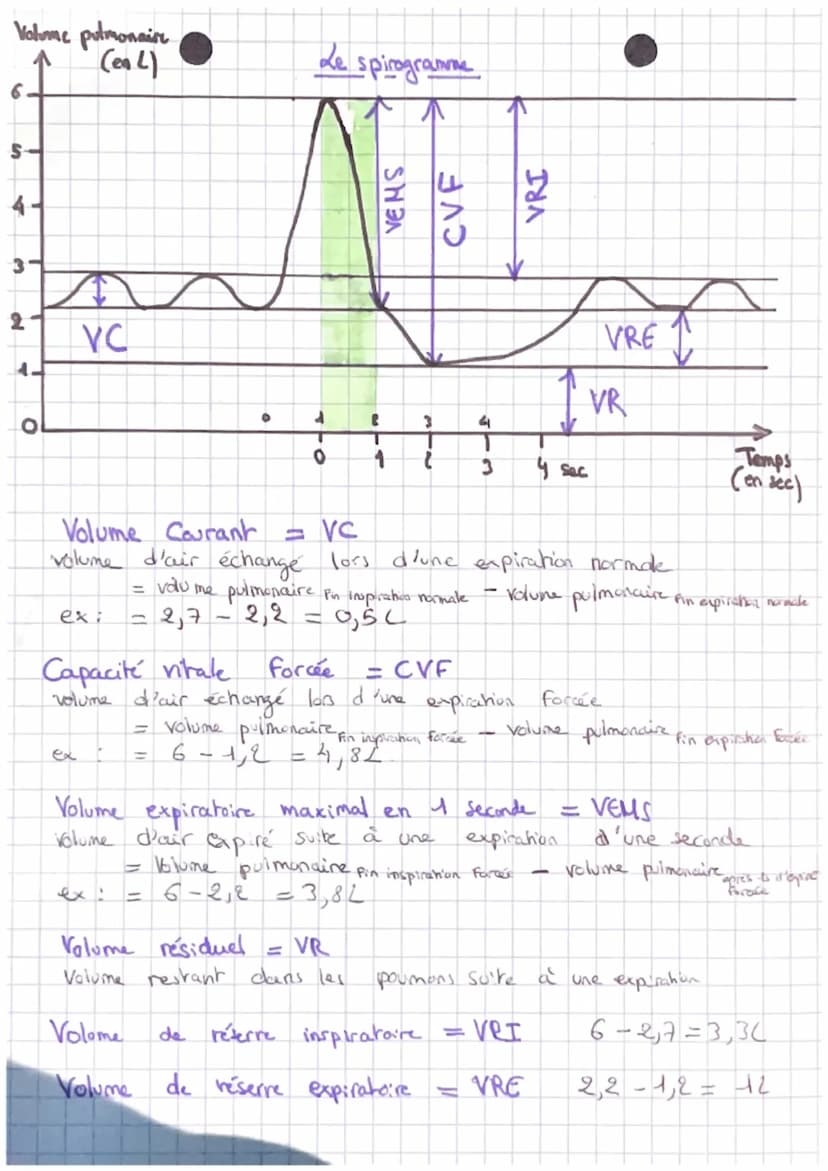 Volume pulmonaire
(en L)
Le spirogramme
6
5
4
3
2
1
0
VEMS
CVF
VRI
VC
VRE
VR
0 1 2 3 4
0 1 2 3 4 sec
Temps
(en sec)
Volume Courant = VC
volume d'air échangé lors d'une expiration normale
= volume pulmonaire fin inspiration normale - volume pulmonaire fin expiration normale
ex : = 2,7 - 2,2 = 0,5L
Capacité vitale forcée = CVF
volume d'air échangé lors d'une expiration forcée
= volume pulmonaire fin inspiration forcée - volume pulmonaire fin expiration forcée
ex : = 6 - 1,2 = 4,8L
Volume expiratoire maximal en 1 seconde = VEMS
Volume d'air expiré suite à une expiration d'une seconde
= Volume pulmonaire fin inspiration forcée - volume pulmonaire après
forcée
ex : = 6 - 2,2 = 3,8L
Volume résiduel = VR
Volume restant dans les poumons suite à une expiration
Volume de réserre inspiratoire = VRI 6 - 2,7 = 3,3L
Volume de réserre expiratoire = VRE 2,2 - 1,2 = 1L